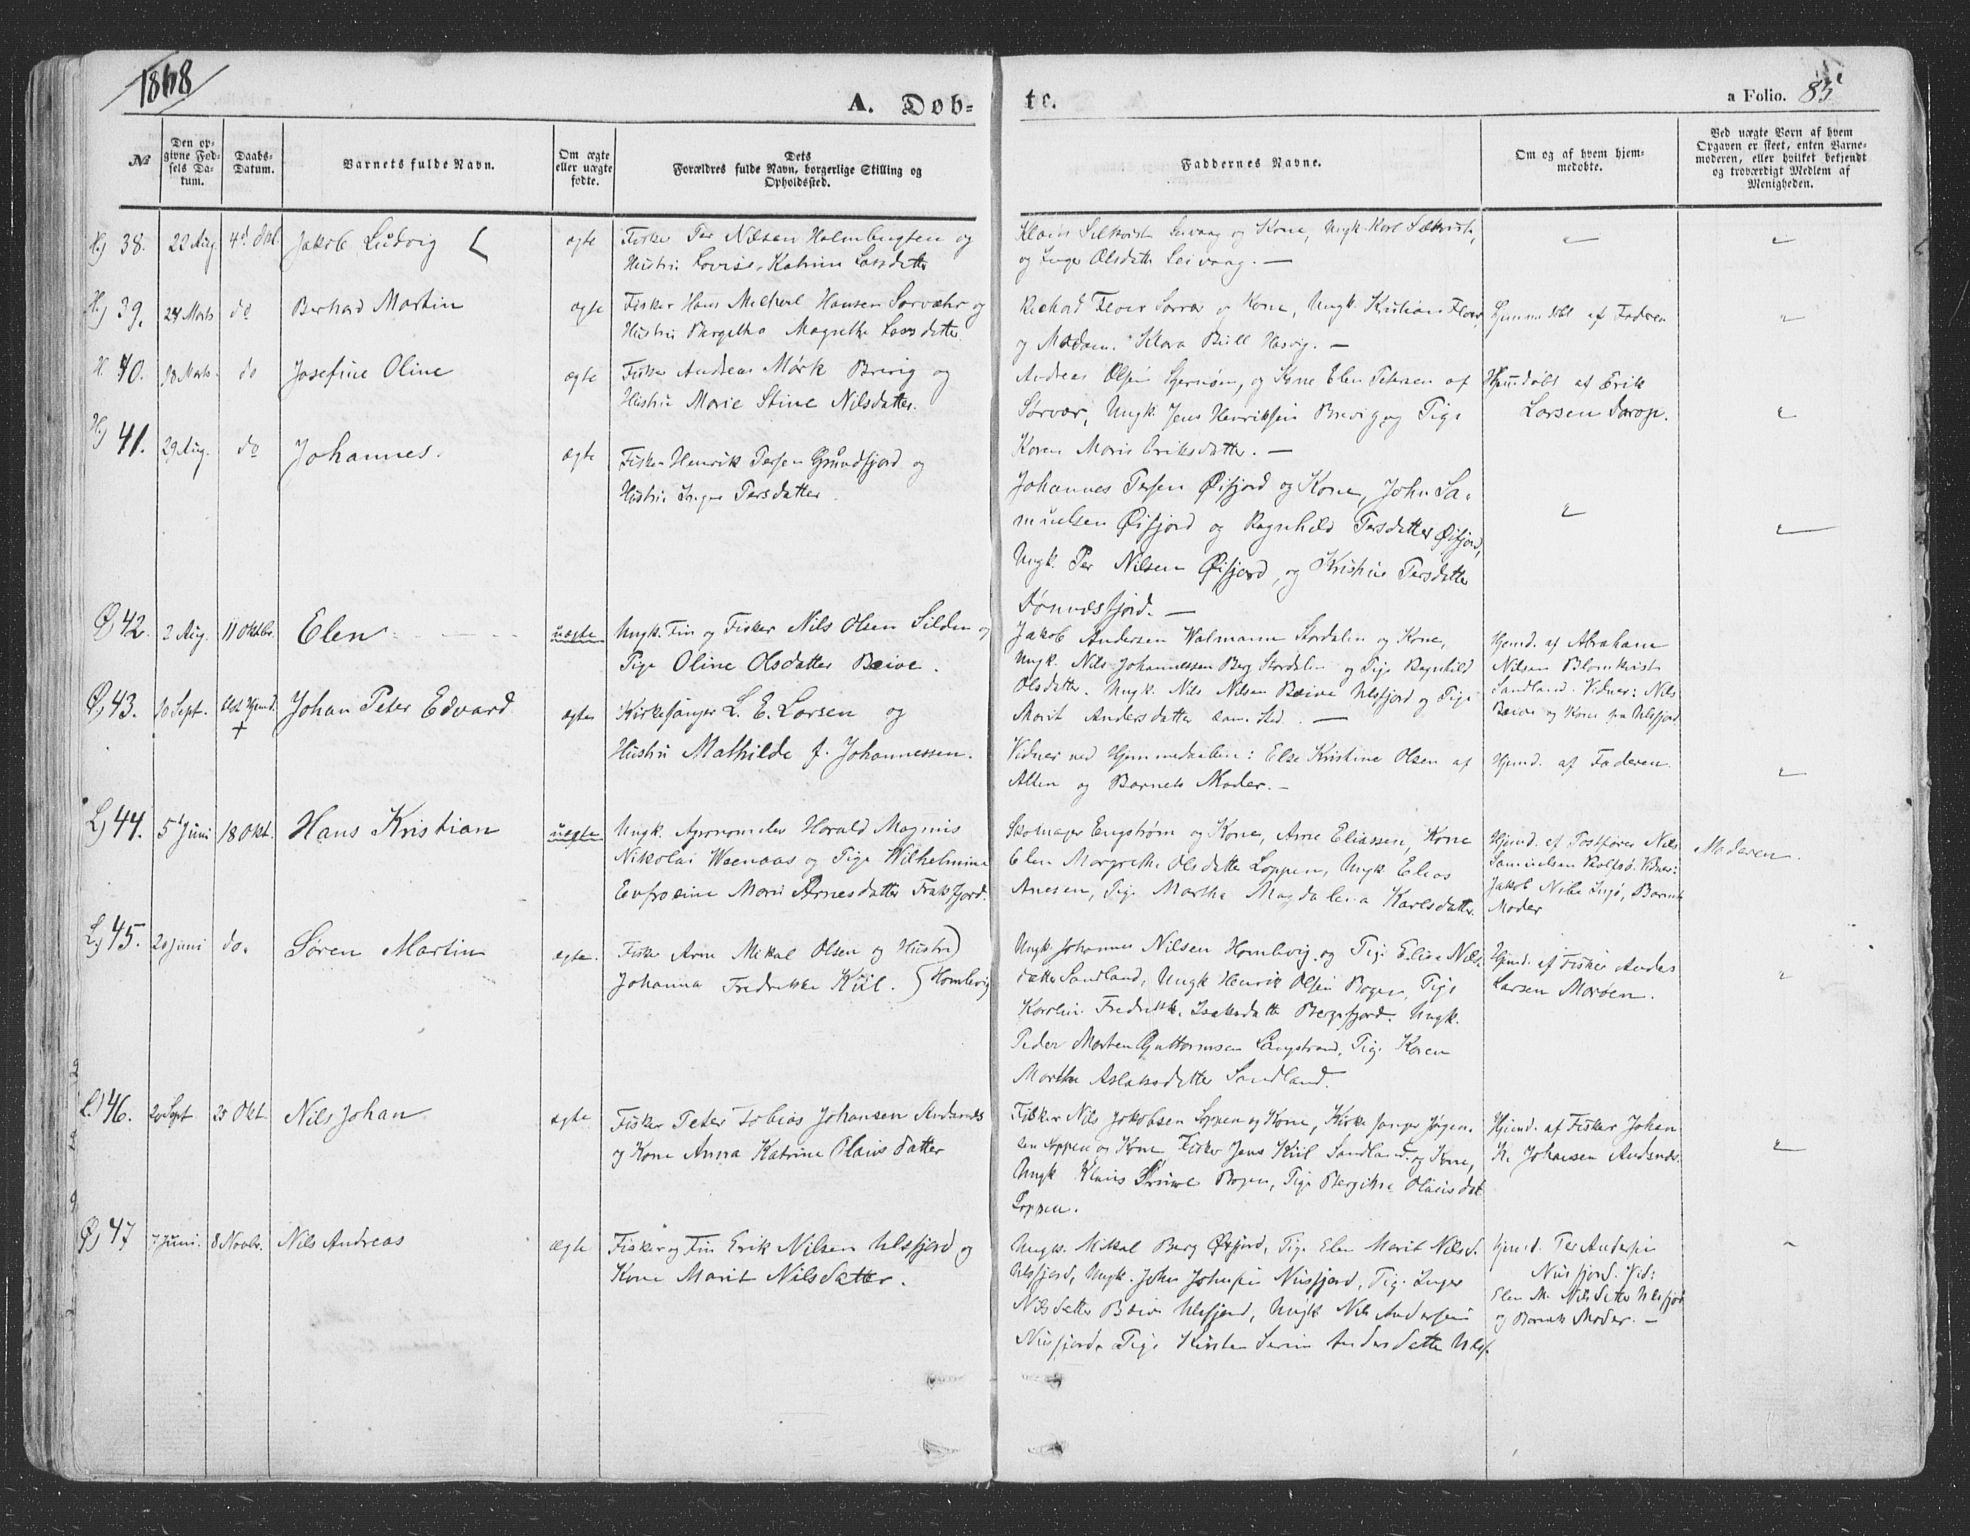 1868
A. Døb-
te.
a Folio. 85
№
Den op-
givne Fød-
sels Da-
tum.
Daabs-
Datum.
Barnets fulde Navn.
Om ægte
eller uægte
fødte.
Dets
Forældres fulde Navn, borgerlige Stilling og
Opholdssted.
Faddernes Navne.
Om og af hvem hjem-
medøbte.
Ved uægte Børn af hvem
Opgaven er skeet, enten Barne-
moderen, eller hvilket bekjendt
og troværdigt Medlem af
Menigheden.
H) 38. 22 Aug. 4d Okt. Jakob Ludvig ægte
Fisker Per Nilsen Holmbugten og
Hustru Lovise Katrine Larsdatter
og Inger Olsdatter Leivaag. —
H) 39. 24 Marts do Berhard Martin ægte
Fisker Hans Michal Hansen Sørvæhr og
Hustru Bergitha Magrethe Larsdatter
Rickard Floer Sørvær og Kone, Ungk. Kristian Floer,
og Madam Klara Bull Hasvig. —
Hjemmedøbt af Faderen
H 40. Marts do Josefine Oline ægte
Fisker Andreas Mørk Brevig og
Hustru Marie Stine Nilsdatter.
Andreas Olsen Stjernøen, og Kone Elen Petersen af
Sørvær, Ungk. Jens Henriksen Brevig og Pige
Karen Marie Eriksdatter. —
Hjemdøbt af Erik
Larsen
H) 41. 29 Aug. do Johannes. ægte
Fisker Henrik Persen Grundfjord og
Hustru Inger Persdatter.
Johannes Persen Øifjord og Kone, John Sa-
muelsen Øifjord og Ragnhild Persdatter Øifjord,
Ungk. Per Nilsen Øifjord, og Kristine Persdatter
Dønnesfjord. —
Ø) 42. 2 Aug. 11 Oktbr. Elen uægte
Ungk. Fin og Fisker Nils Olsen Silden og
Pige Oline Olsdatter Bæive.
Jakob Andersen Walmann Stordalen og Kone,
Ungk. Nils Johannessen Berg Stordalen og Pige Ragnhild
Olsdatter. Ungk. Nils Nilsen Bæive Ulsfjord og Pige
Marit Andersdatter sam. Sted. —
Hjemd. af Abraham
Nilsen Blomkvist
Sandland. Vidner: Nils
Bæive og Kone fra Ulsfjord
Ø) 43. 10 Sept. Hjemd. † Johan Peter Edvard ægte
Kirkesanger L. E. Larsen og
Hustru Mathilde f. Johannessen.
Vidner ved Hjemmedaaben: Else Kristine Olsen af
Alten og Barnets Moder. —
Hjemd. af Faderen.
L) 44. 5 Juni 18 Okt. Hans Kristian uægte
Ungk. Agronomelev Harald Magnus
Nikolai Weenaas og Pige Wilhelmine
Eufrosine Marie Arnesdatter Frakfjord.
Skomager Engstrøm og Kone, Arne Eliassen, Kone
Elen Margrethe Olsdatter Loppen, Ungk Elias
Anesen, Pige Martha Magdalena Karlsdatter
Hjemd. af Postfører Nils
Samuelsen Rolfsø. Vidner:
Jakob Nibe Ingø, Barnets
Moder
Moderen.
L) 45. 20 Juni do. Søren Martin ægte.
Fisker Arne Mikal Olsen og Hustru
Johanna Fredrikke Kiil. Hamlevig
Ungk. Johannes Nilsen Hamlevig og Pige Elise Nils-
datter Sandland, Ungk Henrik Olsen Bogen, Pige
Karoline Fredrikke Isaksdatter Bergsfjord. Ungk.
Peder Morten Guttormsen Langstrand, Pige Karen
Marthe Aslaksdatter Sandland.
Hjemd. af Fisker Anders
Larsen Marøen.
L) 46. 20 Sept 25 Okt. Nils Johan ægte
Fisker Peter Tobias Johansen Andsnes
og Kone Anna Katrine Olausdatter
Fisker Nils Jakobsen Loppen og Kone, Kirkesanger Jørgen-
sen Loppen og Kone Fisker Jens Kiil Sandland og Kone,
Ungk Klaus Bogen, Pige Bergitha Olausdat
Loppen.
Hjemd. af Fisker Johan
Johansen Andsnes.
Ø) 47 7 Juni. 8 Novbr. Nils Andreas ægte
Fisker og Fin Erik Nilsen Ulsfjord og
Kone Marit Nilsdatter.
Ungk. Mikal Berg Øxfjord, Pige Elen Marit Nilsd.
Ulsfjord, Ungk. John Johnsen Nusfjord, Pige Inger
Nilsdatter Bæive Ulsfjord, Ungk Nils Andersen
Nusfjord, Pige Kirsten Serine Andersdatter Ulsf.
Hjemd. Per Andersen
Nusfjord. Vid:
Elen M. Nilsdatter Ulsfjord
og Barnets Moder. —